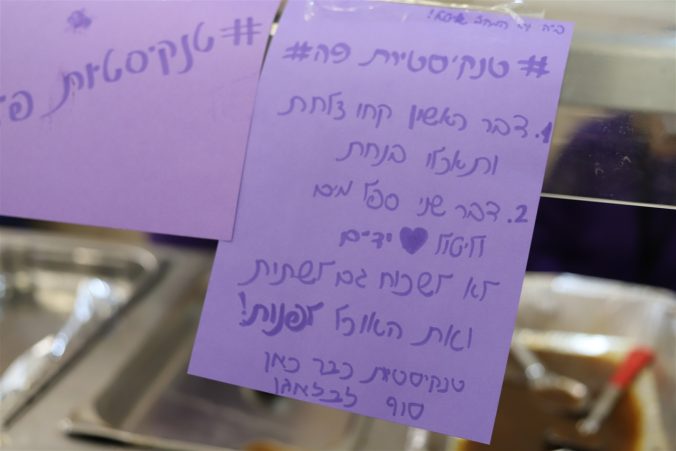 #טנקיסטיות פה
#טנקיסטיות פה#
1. דבר ראשון קחו צלחת
ותאכלו בנחת
2. דבר שני ספל מים
ליטול ♥ ידיים
לא לשכוח גם לשתות
ואת האוכל לפנות!
טנקיסטיות כבר כאן
סוף לבלאגן